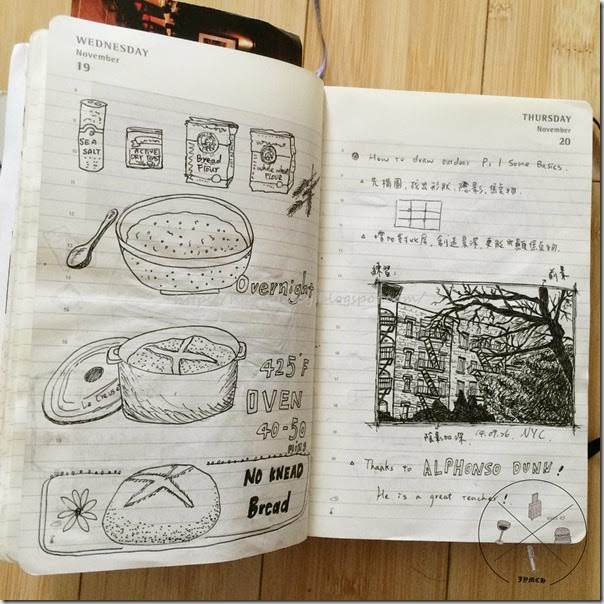 WEDNESDAY
November
19
SEA
SALT
ACTIVE
DRY YEAST
Bread
FLOUR
whole wheat
FLOUR
Overnight
Le Creuset
425°F
OVEN
40-50
mins
NO KNEAD
Bread
THURSDAY
November
20
How to draw outdoor P1 / Some Basics.
先構圖,找出形狀,陰影,焦點物.
增加對比度,創造景深,更能凸顯焦點物.
練習:
前景
陰影加深
14.09.26. NYC.
Thanks to ALPHONSO DUNN!
He is a great teacher!